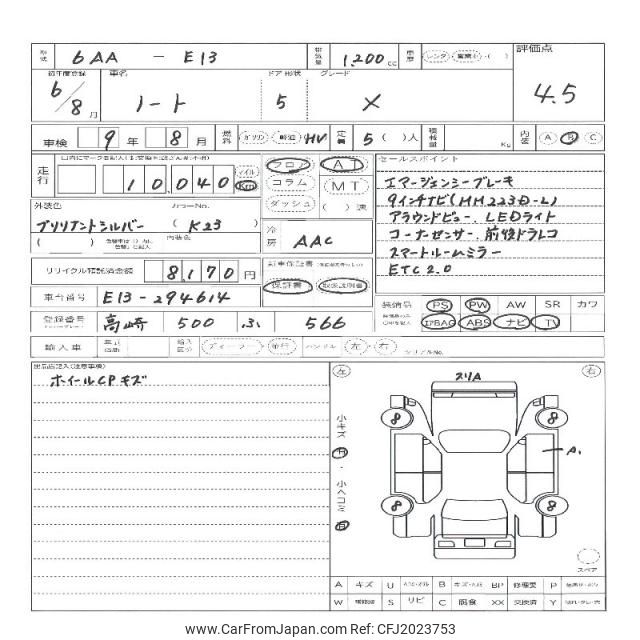 型式 6AA - E13 排気量 1,200 cc 車歴 レンタ 評価点
初年度登録 車名 ドア 形状 グレード
6/8月 ノート 5 X 4.5
車検 9年 8月 燃料 ガソリン 軽油 HV 定員 5( )人 積載量 Kg 内装 A B C
走行 10040 マイル Km フロア AT セールスポイント
コラム MT
ダッシュ ( )速
エマージェンシーブレーキ
9インチナビ(MM223D-L)
アラウンドビュー、LEDライト
コーナーセンサー、前後ドラレコ
スマートルームミラー
ETC2.0
外装色 カラーNo.
ブリリアントシルバー (K23)
内装色
冷房 AAC
リサイクル預託済金額 8,170円 新車保証書
保証書 取扱説明書
車台番号 E13-294614
装備品 PS PW AW SR カワ
AIRBAG ABS ナビ TV
登録番号 高崎 500 ふ 566
輸入車 年式 輸入区分 ディーラー 並行 ハンドル 左・右 シリアルNo.
出品店記入(注意事項)
ホイールCPキズ
左 右
スリA
小キズ 有・小ヘコミ 有
8 8
A1
8 8
スペア
A キズ U B キズ・ヘコミ BP 修理要 P
W S サビ C 腐食 XX 交換済 Y
www.CarFromJapan.com Stock ID: CFJ2023753